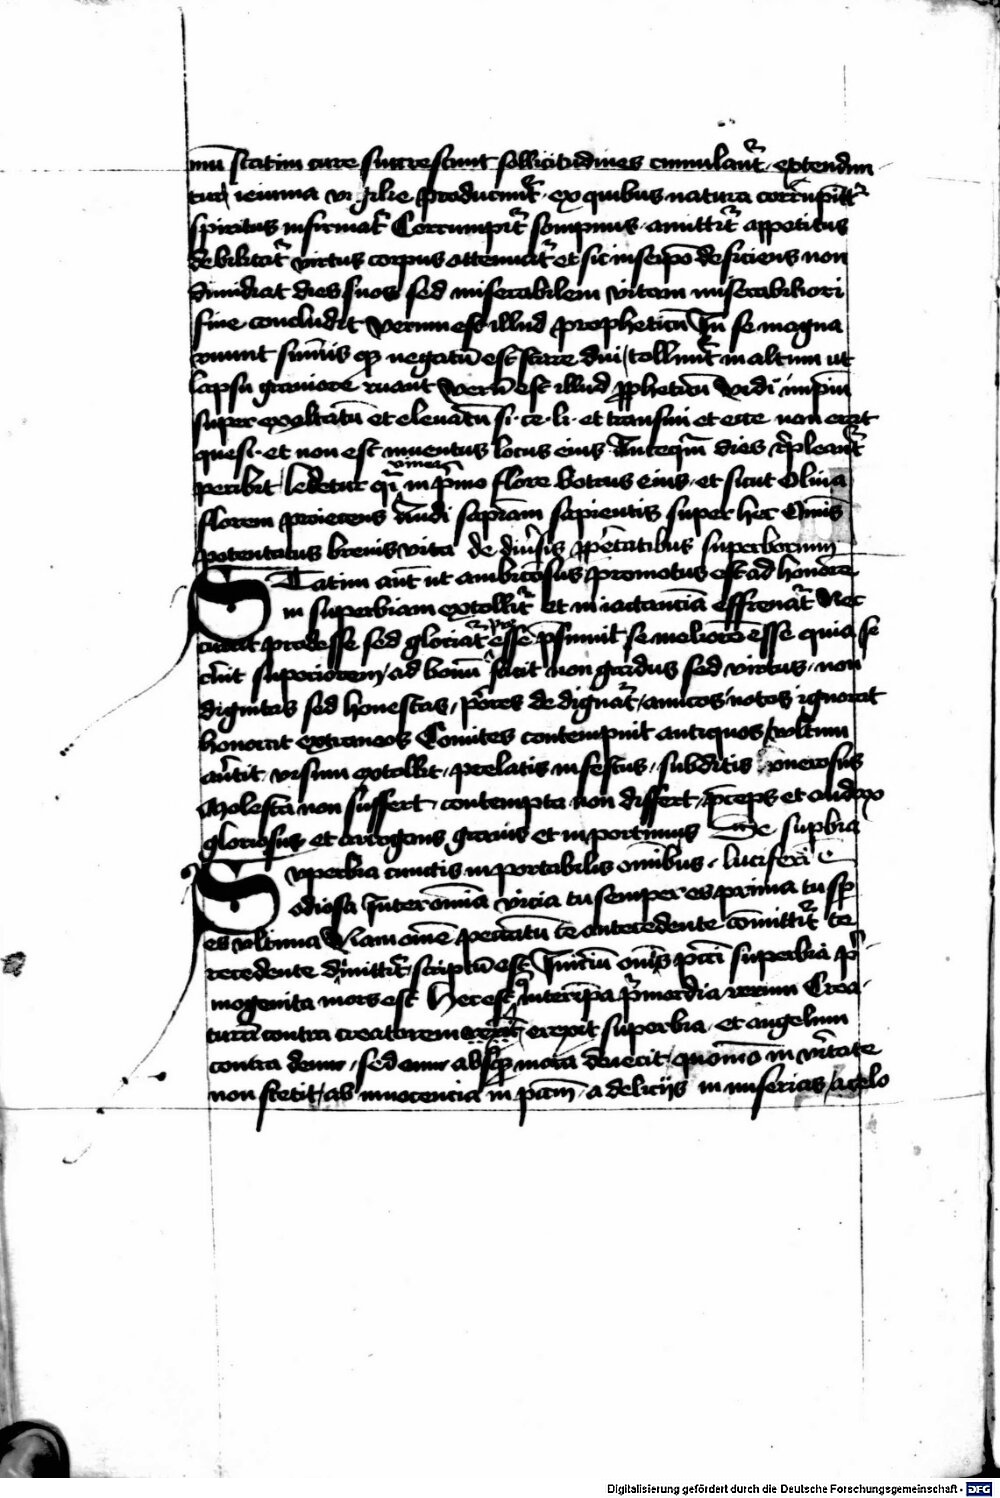 mū statim cure succrescunt sollicitudines cumulant᷑ · extendun
tur ieiunia vigilie producunt᷑ · ex quibus natura corrūpit᷑
spiritus infirmat᷑ Corrumpit᷑ sompnus · amittit᷑ appetitus
debilitat᷑ virtus corpus attenuat᷑ et sic in seip̄o deficiens non
dimidiat dies suos sed miserabilem vitam miserabiliori
fine concludit Verum est illud propheticū In se magna
ruunt sūmis qȝ negatū est stare diu / tollunt᷑ in altum ut
lapsu graviore ruant Verū est illud ꝓpheticū Vidi impiū
super exaltatū et elevatū si · ce · li · et transivi et ecce non erat
quesi · et non est inventus locus eius Anteqūm dies īpleant᷑
peribit / ledetur q̄i vinea in p̄mo flore botrus eius · et sicut oliva
florem proiciens sapiēntis super hec Om̄is
potentatus brevis vita de div̄sis ꝓp̄etatibus superborum
Statim aūt ut ambiciosus promotus est ad honorē
in superbiam extollit᷑ et in iactanciā effrenat᷑ Nec
curat prodesse sed gloriat᷑ p̄esse p̄sumit se meliorē esse quia se
c̄nit superiorem / ad bonū facit non gradus sed virtus · non
dignitas sed honestas / p̄ores dedignat᷑ / amicos notos ignorat
honorat extraneos Comites contempnit antiquos / vultum
av̄tit visum extollit · prelatis infestus · subditis onerosus
Molesta non suffert · contempta non differt · p̄ceps et audax
gloriosus et arrogans gravis et inportunus De supbia
Superbia cunctis inportabilis om̄ibus · luciferi
odiosa Inter om̄ia vicia tu semper es prima tu sp̄
es ultima Nam om̄e peccatū te antecedente com̄ittit᷑ te
recedente dimittit᷑ scriptū est Iniciū om̄is pcc̄i superbia p̄
mogenita mors est Hec est inter ip̄a p̄mordia rerum Crea·
turā contra creatorem erexit superbia · et angelum
contra deum · sed eum absqȝ mora deiecit quoniā in v̄itate
non stetit / ab innocencia in pcc̄m · a deliciis in miserias / a celo
Digitalisierung gefördert durch die Deutsche Forschungsgemeinschaft - DFG